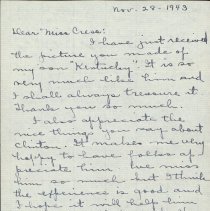 Nov. 28 - 1943
Dear Miss Cress:
I have just received
the picture you made of
my son "Kentucky". It is so
very much like him and
I shall always treasure it.
Thank you so much.
I also appreciate the
nice things you say about
Clinton. It makes me very
happy to have folks ap
preciate him. We miss
him so much but I think
the experience is good and
I hope it will help him